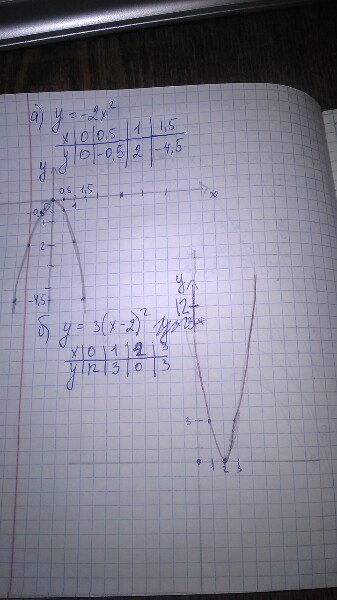 а) y = -2x²
x | 0 | 0,5 | 1 | 1,5
y | 0 | -0,5 | 2 | -4,5
y
0,5 1,5
1
x
-0,5
2
-4,5
б) y = 3(x-2)²
x | 0 | 1 | 2 | 3
y | 12 | 3 | 0 | 3
y
12
3
1 2 3